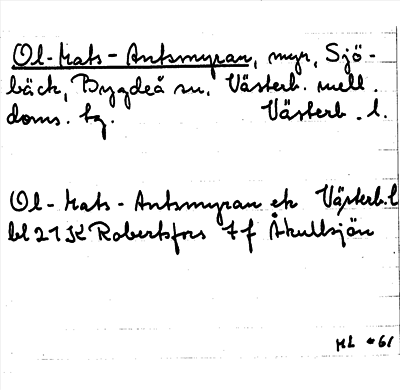 Ol-Mats-Antsmyran, myr, Sjö-
bäck, Bygdeå sn. Västerb. mell.
doms. tg. Västerb. l.
Ol-Mats-Antsmyran ek Västerb. l
bl 21 K Robertsfors 7 f Åkullsjön
HL -61